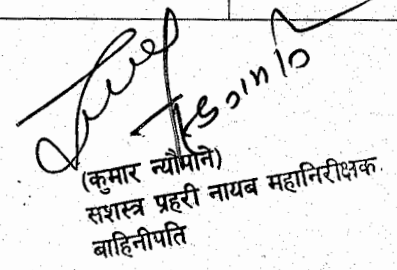 (कुमार न्यौपाने)
सशस्त्र प्रहरी नायब महानिरीक्षक
बाहिनीपति